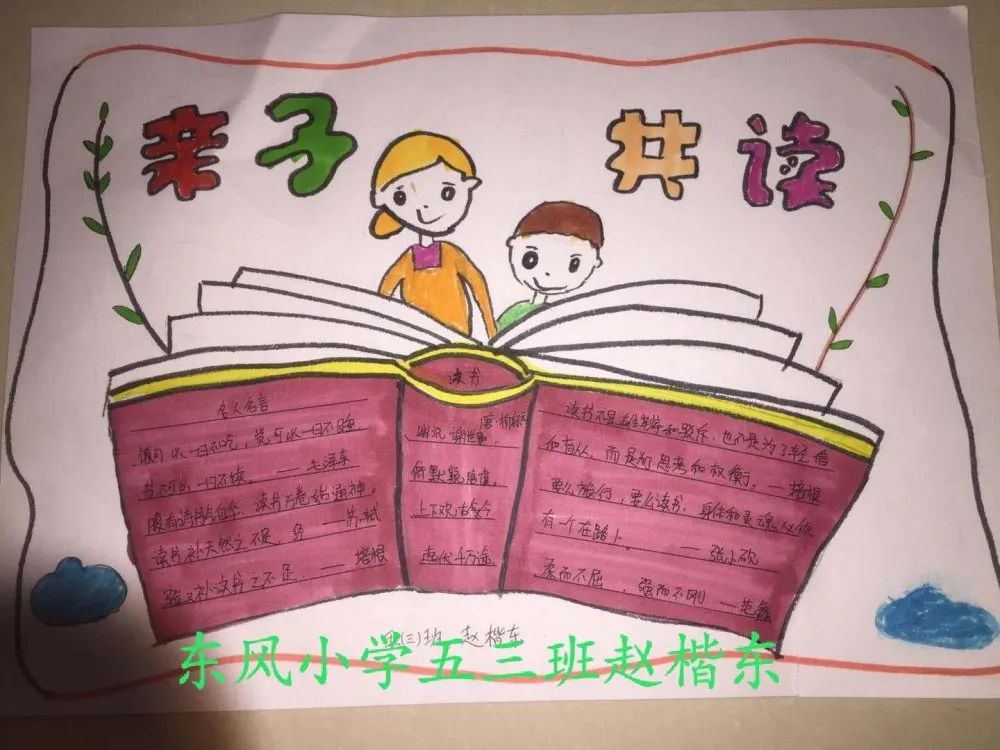 亲子 共读
读书
名人名言
饭可以一日不吃，觉可以一日不睡
书不可以一日不读。——毛泽东
腹有诗书气自华，读书万卷始通神。
——苏轼
读书补天然之不足，经
验又补读书之不足。——培根
唐·
谢世事，
俯默窥唐虞。
上下观古今
起伏千万途。
读书不是为了雄辩和驳斥，也不是为了轻信
和盲从，而是为了思考和权衡。——培根
要么旅行，要么读书，身体和灵魂必须
有一个在路上。——张小砚
柔而不屈，强而不刚——范蠡
五(三)班 赵楷东
东风小学五三班赵楷东